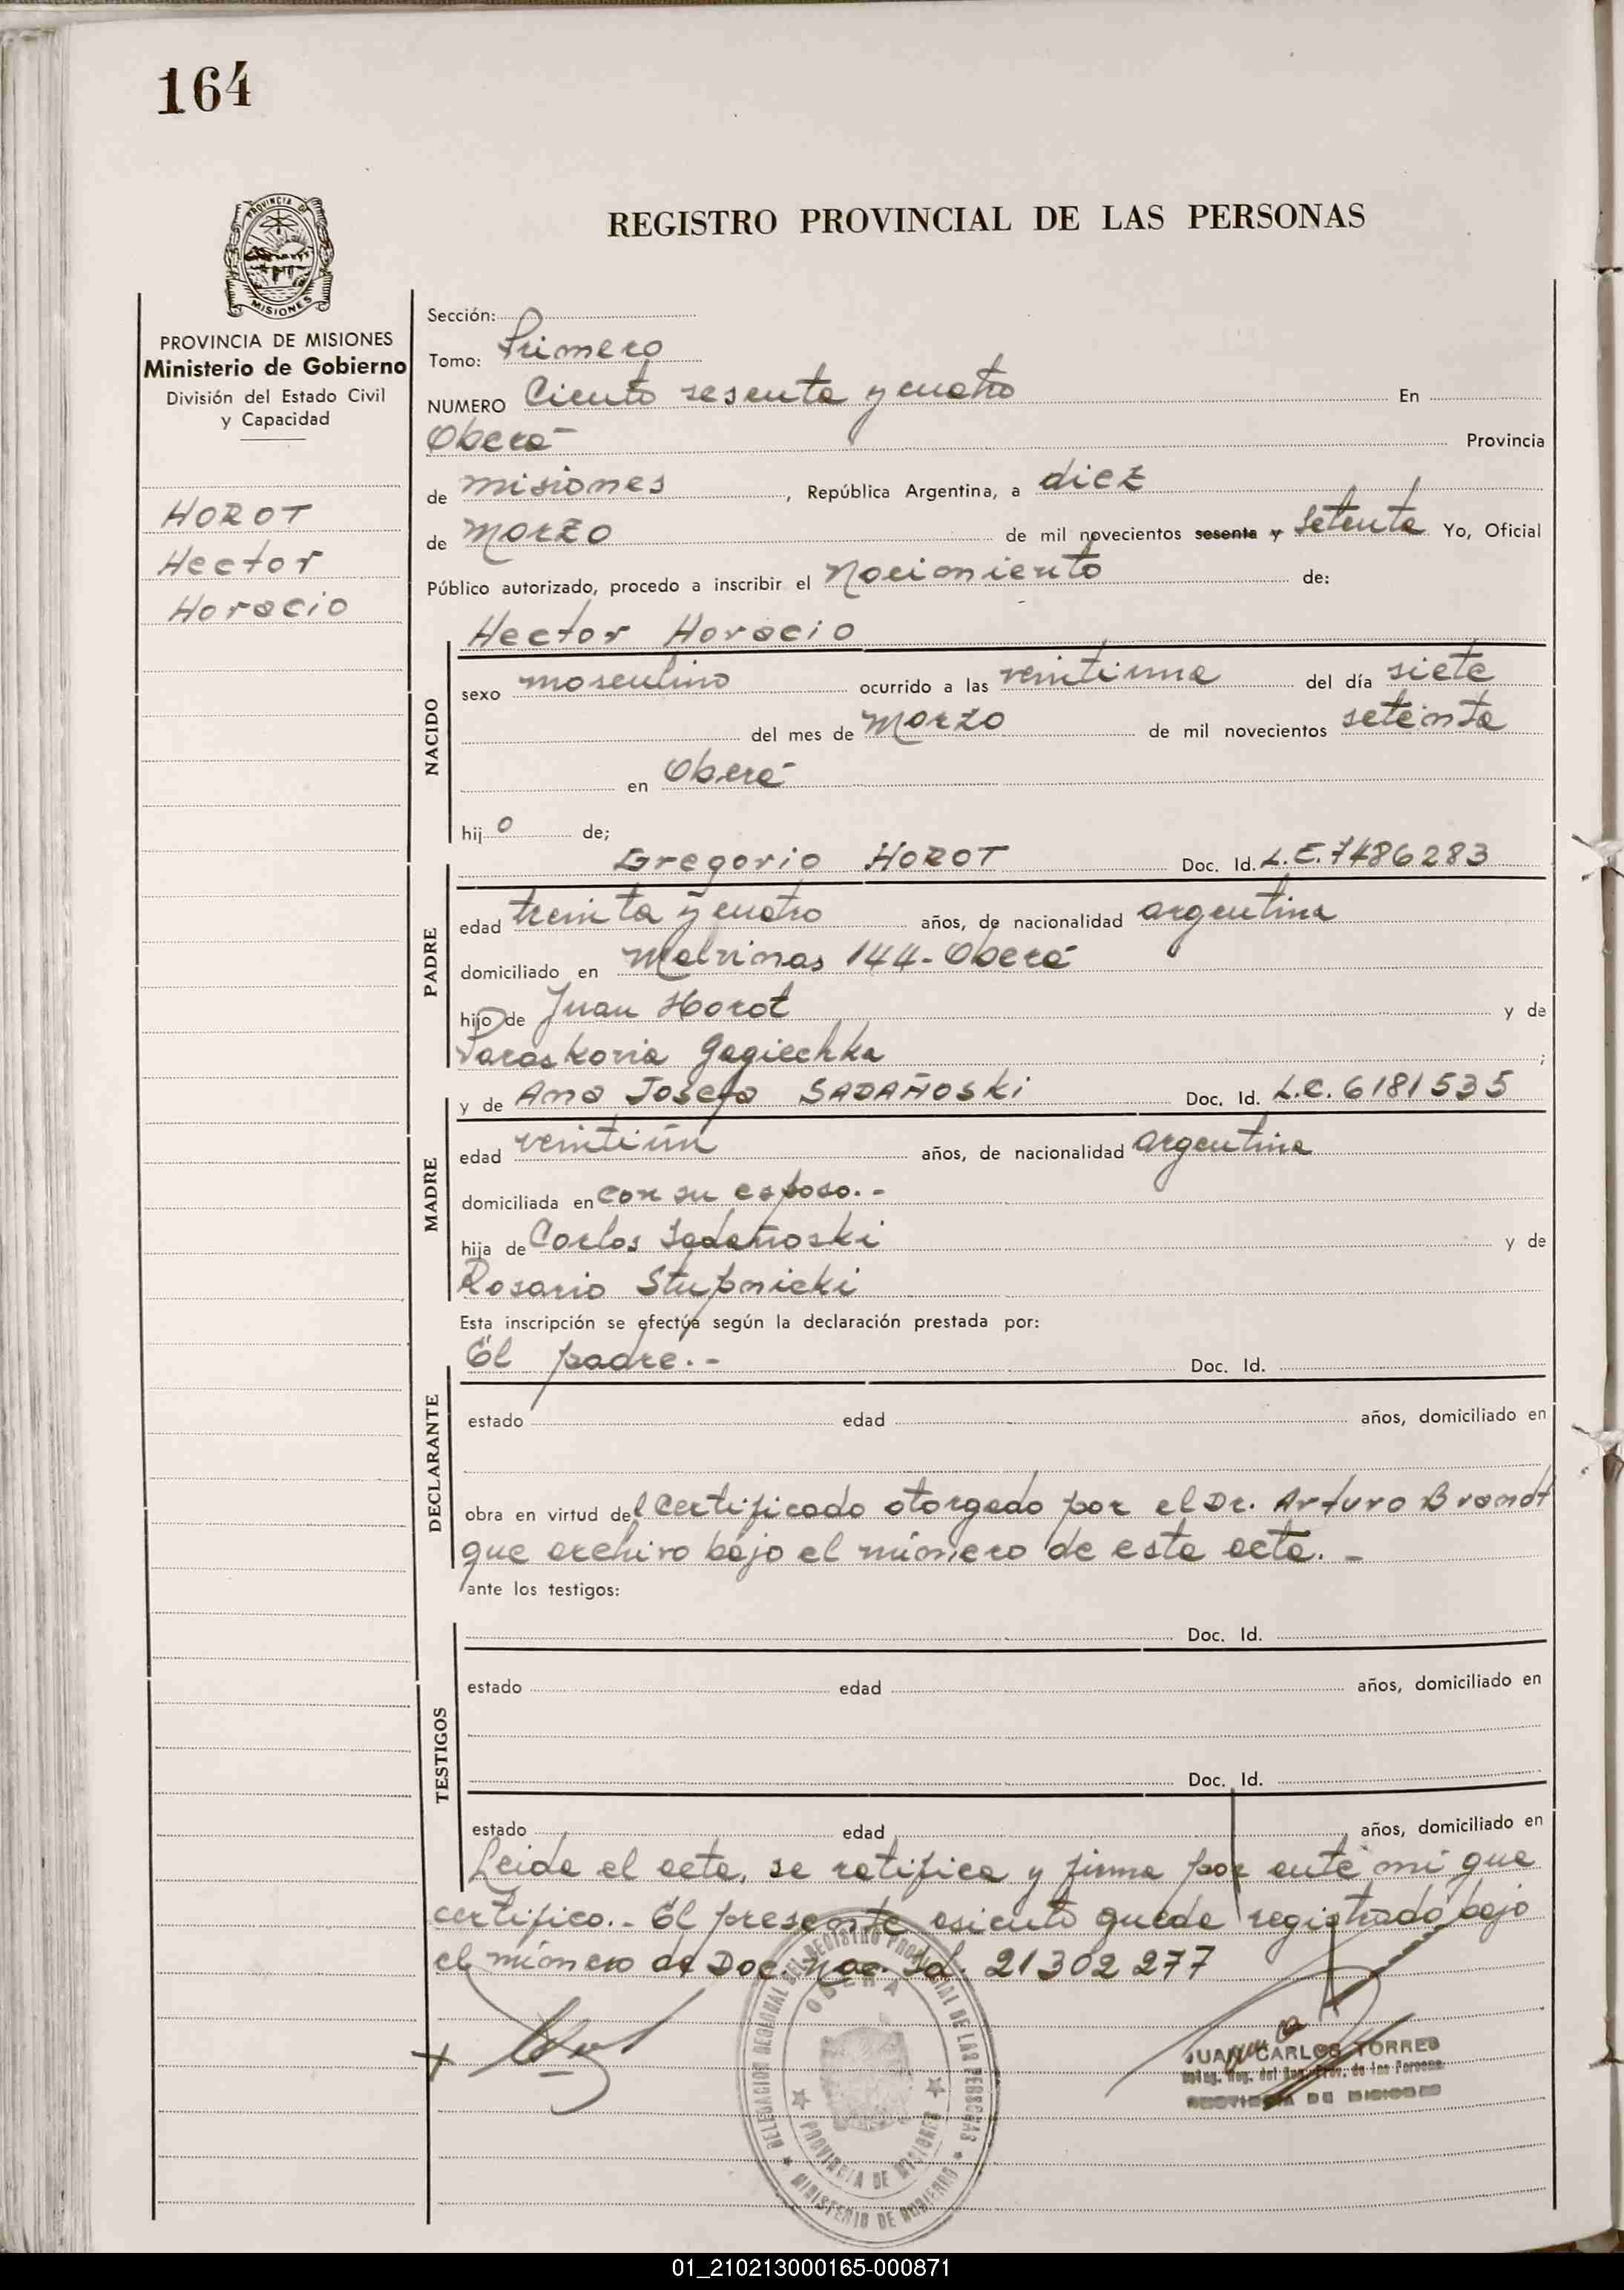 164
PROVINCIA DE
MISIONES
REGISTRO PROVINCIAL DE LAS PERSONAS
PROVINCIA DE MISIONES
Ministerio de Gobierno
División del Estado Civil
y Capacidad
HOROT
Hector
Horacio
Sección:
Tomo: Primero
NUMERO Ciento sesenta y cuatro En
Oberá Provincia
de misiones, República Argentina, a diez
de Marzo de mil novecientos sesenta y setenta Yo, Oficial
Público autorizado, procedo a inscribir el Nacimiento de:
NACIDO
Hector Horacio
sexo masculino ocurrido a las veintiuna del día siete
del mes de Marzo de mil novecientos setenta
en Oberá
hijo de;
PADRE
Gregorio HOROT Doc. Id. L.E. 7486283
edad treinta y cuatro años, de nacionalidad argentina
domiciliado en Malvinas 144 - Oberá
hijo de Juan Horot y de
Paraskovia Gagiechka ;
MADRE
y de Ana Josefa SADAÑOSKI Doc. Id. L.C. 6181535
edad veintiún años, de nacionalidad argentina
domiciliada en con su esposo.-
hija de Carlos Sadañoski y de
Rosario Stupnicki
Esta inscripción se efectúa según la declaración prestada por:
DECLARANTE
El padre.- Doc. Id.
estado edad años, domiciliado en
obra en virtud del Certificado otorgado por el Dr. Arturo Brandt
que archivo bajo el número de esta acta.-
ante los testigos:
TESTIGOS
Doc. Id.
estado edad años, domiciliado en
Doc. Id.
estado edad años, domiciliado en
Leida el acta, se ratifica y firma por ante mi que
certifico.- El presente asiento queda registrado bajo
el número de Doc. Nac. Id. 21302277
DELEGACION REGIONAL DEL REGISTRO PROVINCIAL DE LAS PERSONAS
OBERA
PROVINCIA DE MISIONES
MINISTERIO DE GOBIERNO
JUAN CARLOS TORRES
PROVINCIA DE MISIONES
01_210213000165-000871